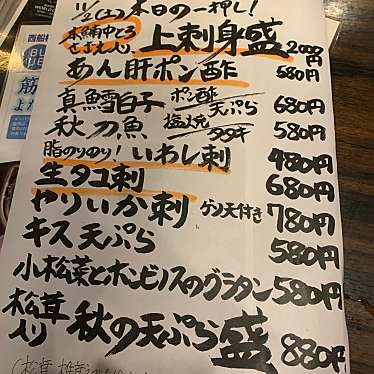 11/2(土)本日の一押し!
本鮪中とろ
さざえ入 上刺身盛 2000円
あん肝ポン酢 580円
真鱈白子 ポン酢 天ぷら 680円
秋刀魚 塩焼 タタキ 580円
脂のりのり!いわし刺 480円
生タコ刺 680円
やりいか刺 ゲソ天付き 780円
キス天ぷら 580円
小松菜とホンビノスのグラタン 580円
松茸入り 秋の天ぷら盛 880円
西船橋
筋